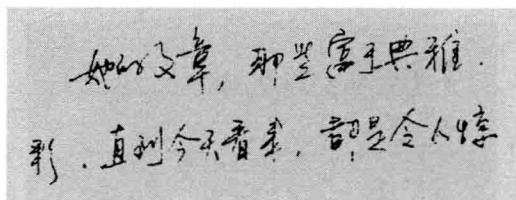 她的文章，那些富于典雅.
彩.直到今天看来，都是令人惊